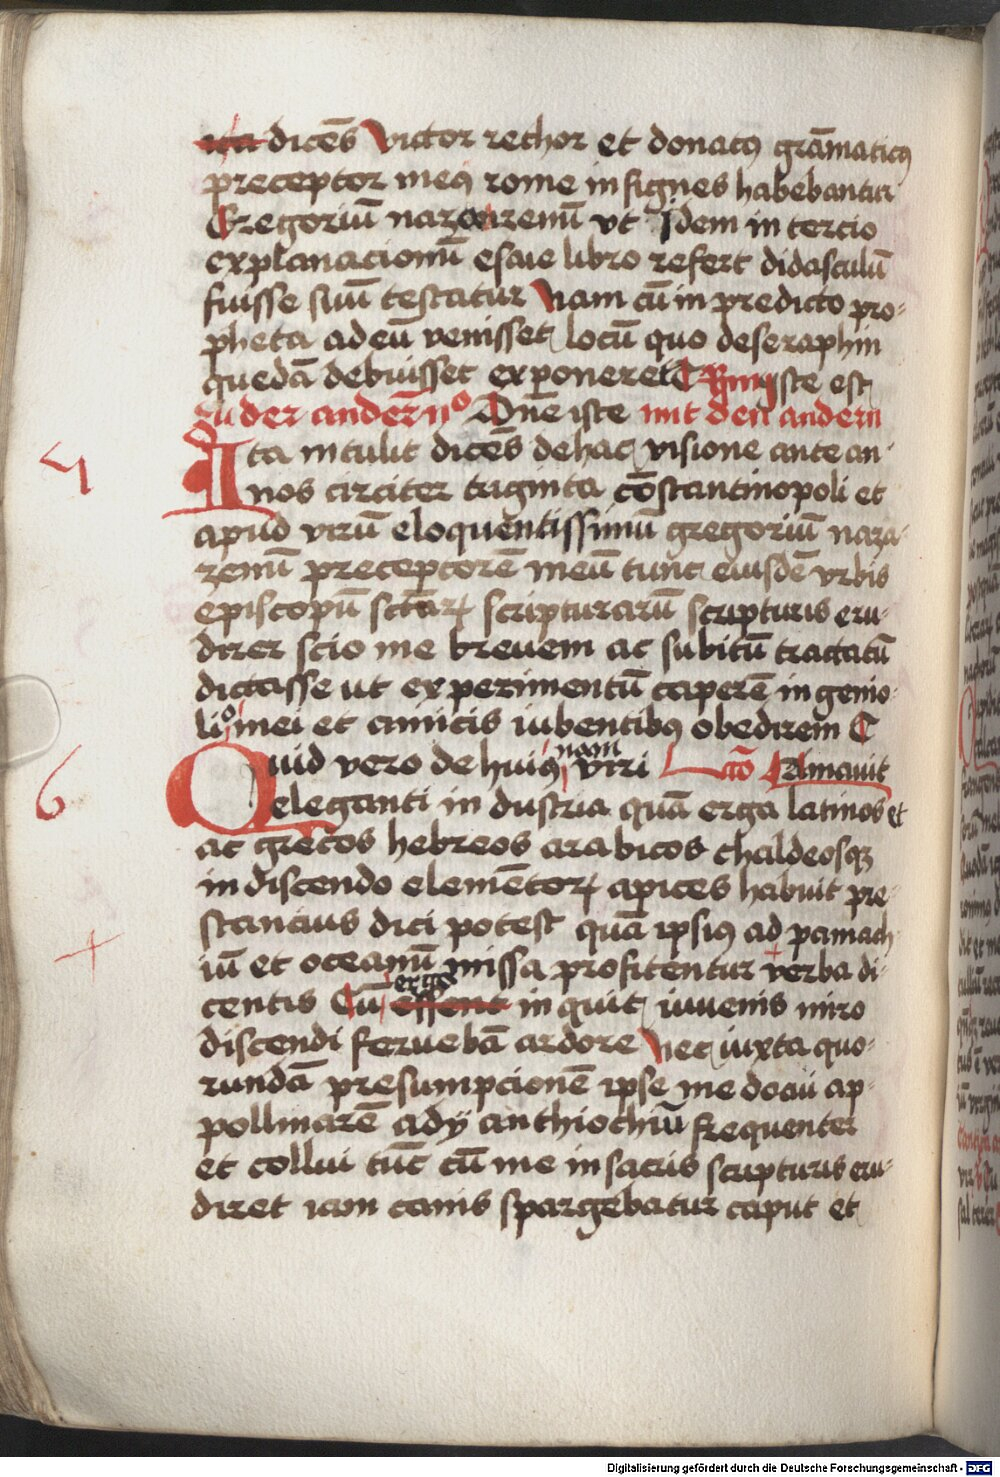 ita dicēs victor rethor et donatꝯ grāmaticꝯ
preceptor meꝯ rome insignes habebantur
Gregoriū nazanzenū vt Idem in tercio
explanacionū esaie libro refert didasculū
fuisse suū testatur Nam cū in predicto pro-
pheta ad eū venisset locū quo de seraphin
quedā debuisset exponere iste est
zu der andern Dn̄e iste mit den andern
5
Ita intulit dicēs de hac visione ante an-
nos circiter triginta cōstantinopoli et
apud virū eloquentissimū gregoriū naza-
zenū preceptorē meū tunc eiusdē vrbis
episcopū sctārꝝ scripturarū scripturis eru-
direr scio me breuem ac subitū tractatū
dictasse ut experimentū caperē ingenio-
li mei et amicis iubentibꝯ obedirem
6
Quid vero de huiꝯ nam viri Lc̄o Amauit
eleganti in dustria quā erga latinos et
ac grecos hebreos arabicos chaldeosqꝫ
in discendo elemētorꝝ apices habuit pre-
stancius dici potest quā ipsiꝯ ad pamach-
iū et oceanū missa profitentur verba di-
centis Cū essent ergo inquit iuuenis miro
discendi ferue bā ardore Nec iuxta quo-
rundā presumpcionē ipse me docui ap-
pollinarē adij anthiochiū frequenter
et collui tūc cū me in sacris scripturis eru-
diret iam canis spargebatur caput et
Digitalisierung gefördert durch die Deutsche Forschungsgemeinschaft - DFG